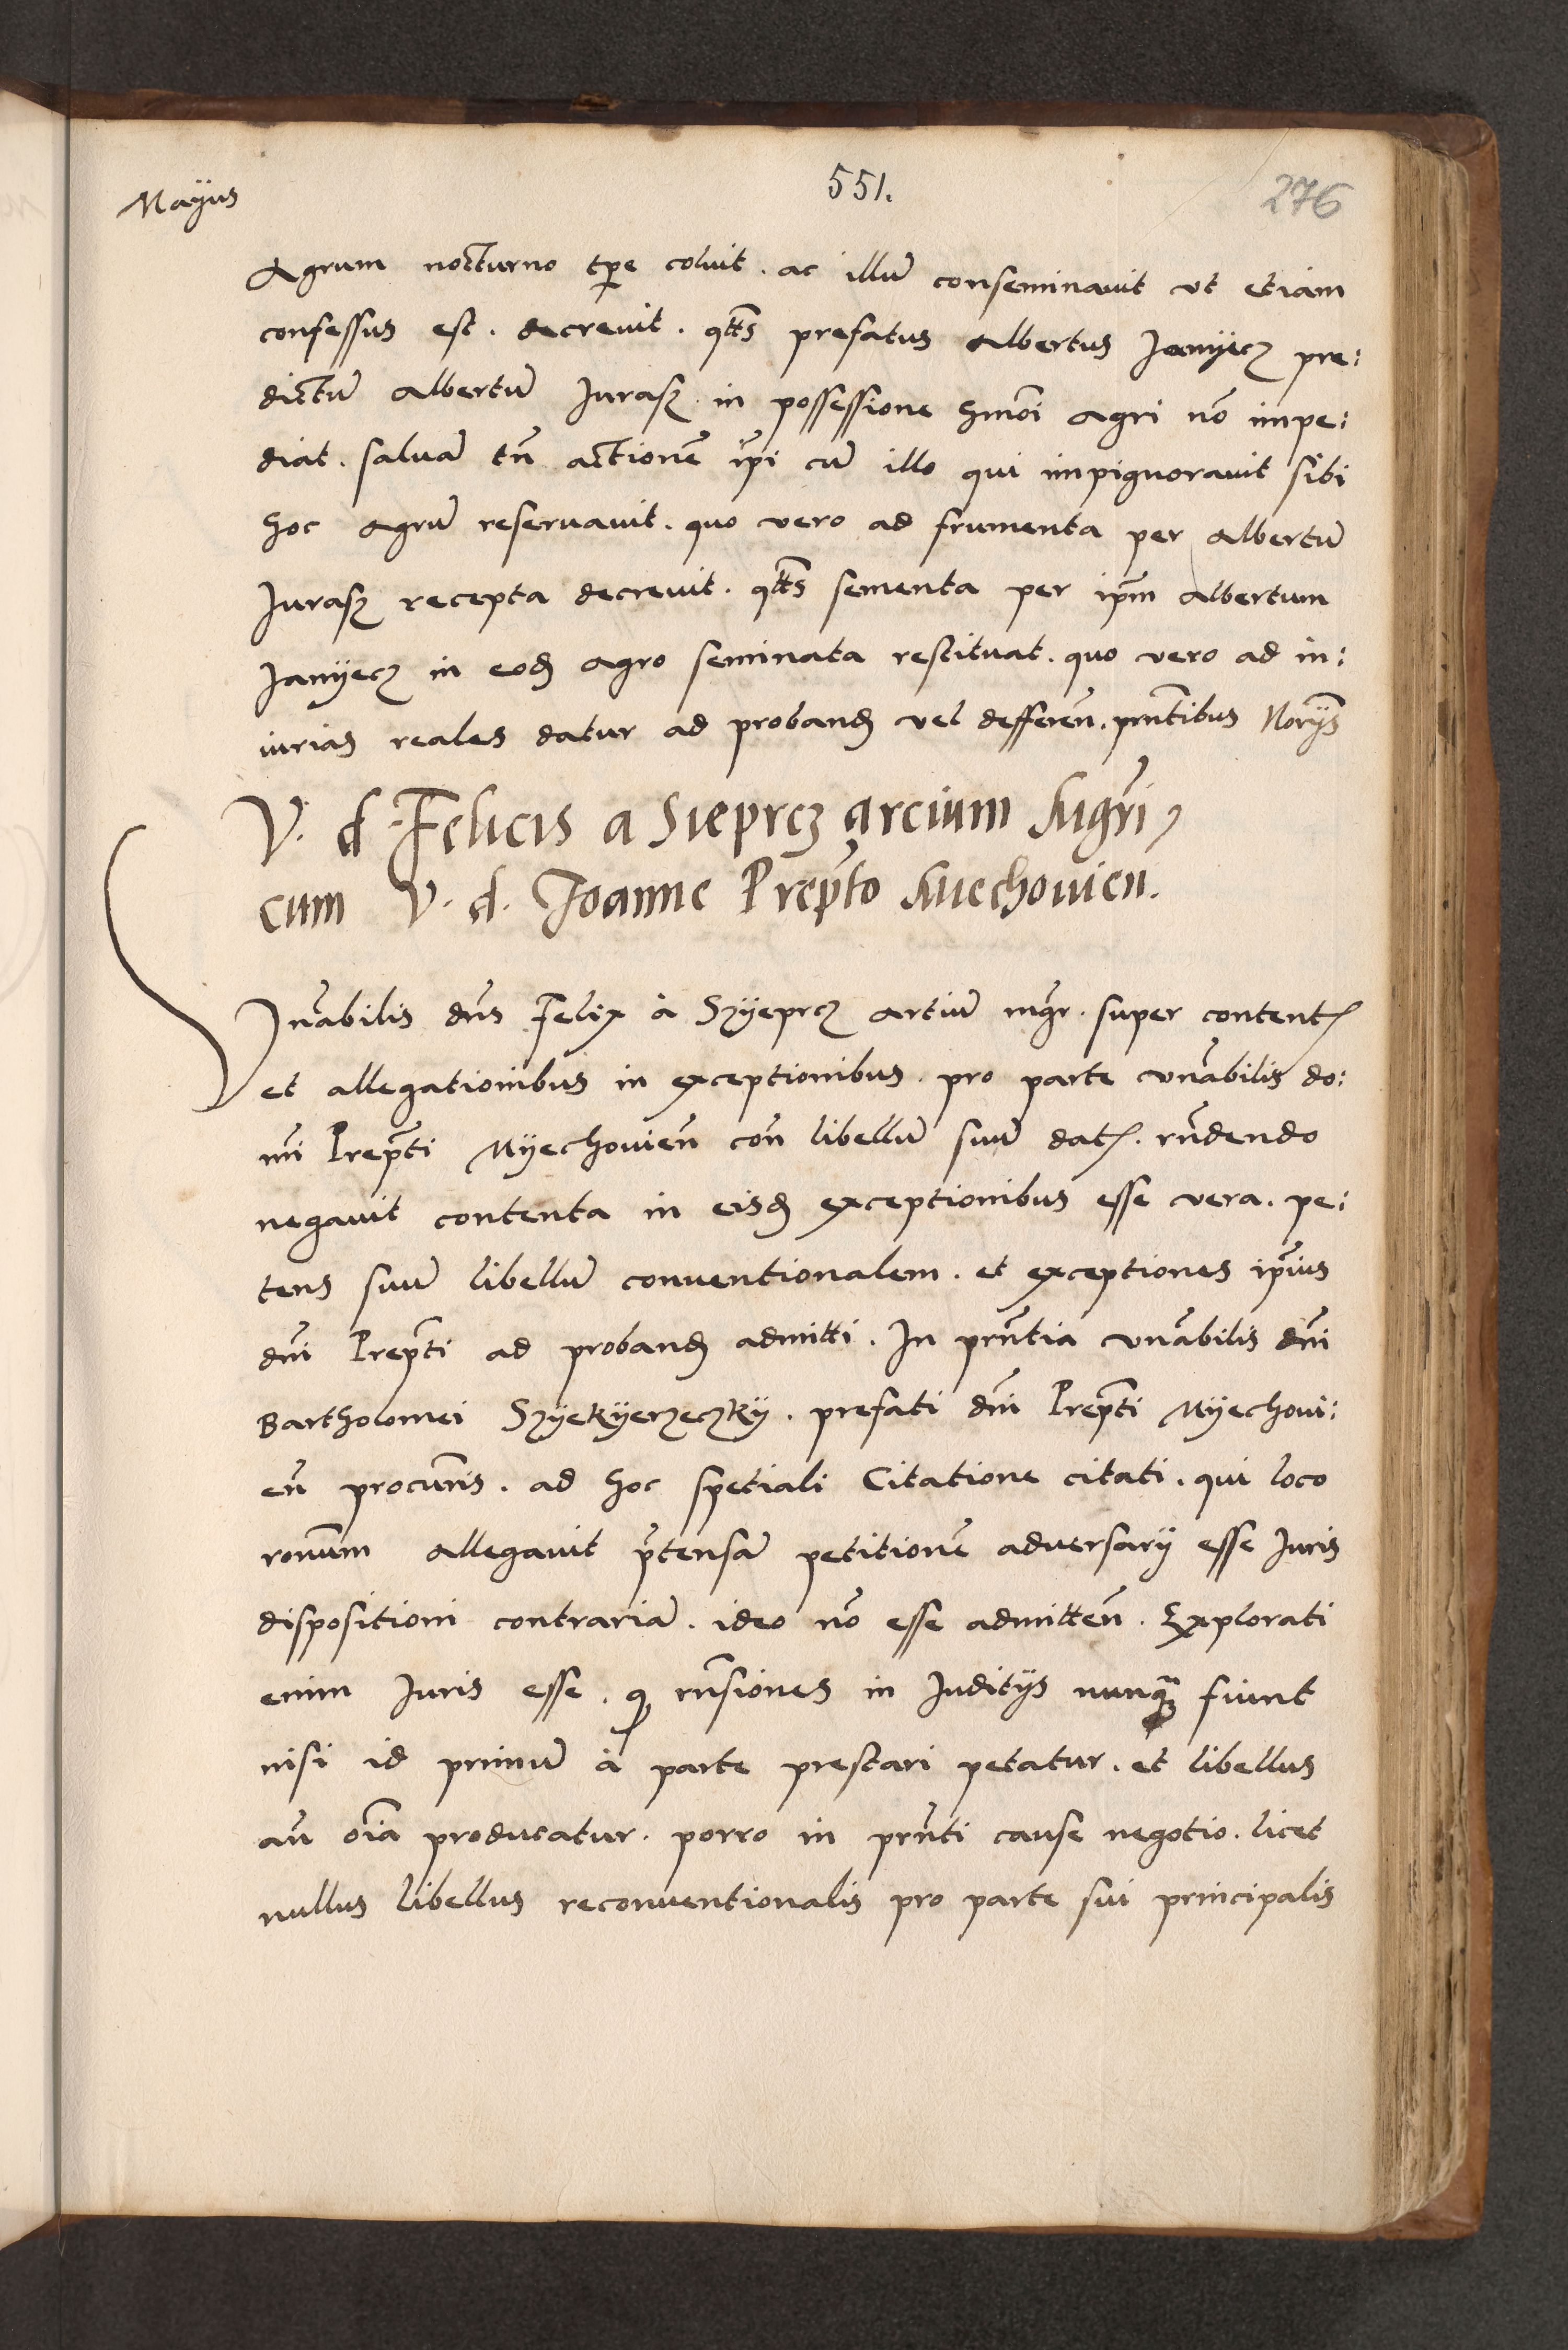 Mayus
551.
276
Agrum nocturno tpe coluit. ac illũ conseminauit vt etiam
confessus est. decreuit. qtts prefatus Albertus Janyecz pre:
dictũ Albertũ Jurasz in possessione hmõi Agri nõ impe:
diat. saluã tñ actionẽ ipi cũ illo qui impignorauit sibi
hoc Agrũ reseruauit. quo vero ad frumenta per Albertũ
Jurasz recepta decreuit. qtts sementa per ipm Albertum
Janyecz in eod agro seminata restituat. quo vero ad in:
iurias reales datur ad proband vel defferẽn. pñtibus Norijs
V. d. Felicis a Sieprcz arcium Mgri
cum V. d. Joanne Prepto Miechouien.
Vñabilis dñs Felix à Szyeprcz artiũ mgr. super content
et allegationibus in exceptionibus. pro parte vñabilis do:
mi Prepti Myechouieñ coñ libellũ suũ dat. rñdendo
negauit contenta in eisd exceptionibus esse vera. pe:
tens suũ libellũ conuentionalem. et exceptiones ipius
dñi Prepti ad proband admitti. In pñtia vñabilis dñi
Bartholomei Szyekyerzeczky. prefati dñi Prepti Myechoui:
eñ procuris. ad hoc spetiali Citatione citati. qui loco
ronum Allegauit ptensã petitionẽ aduersarij esse Juris
dispositioni contrariã. ideo nõ esse admitteñ. Explorati
enim Juris esse. q rñsiones in Juditijs nunq̃ fiunt
nisi id primũ à parte prestari petatur. et libellus
añ oĩa producatur. porro in pñti cause negotio. licet
nullus libellus reconuentionalis pro parte sui principalis